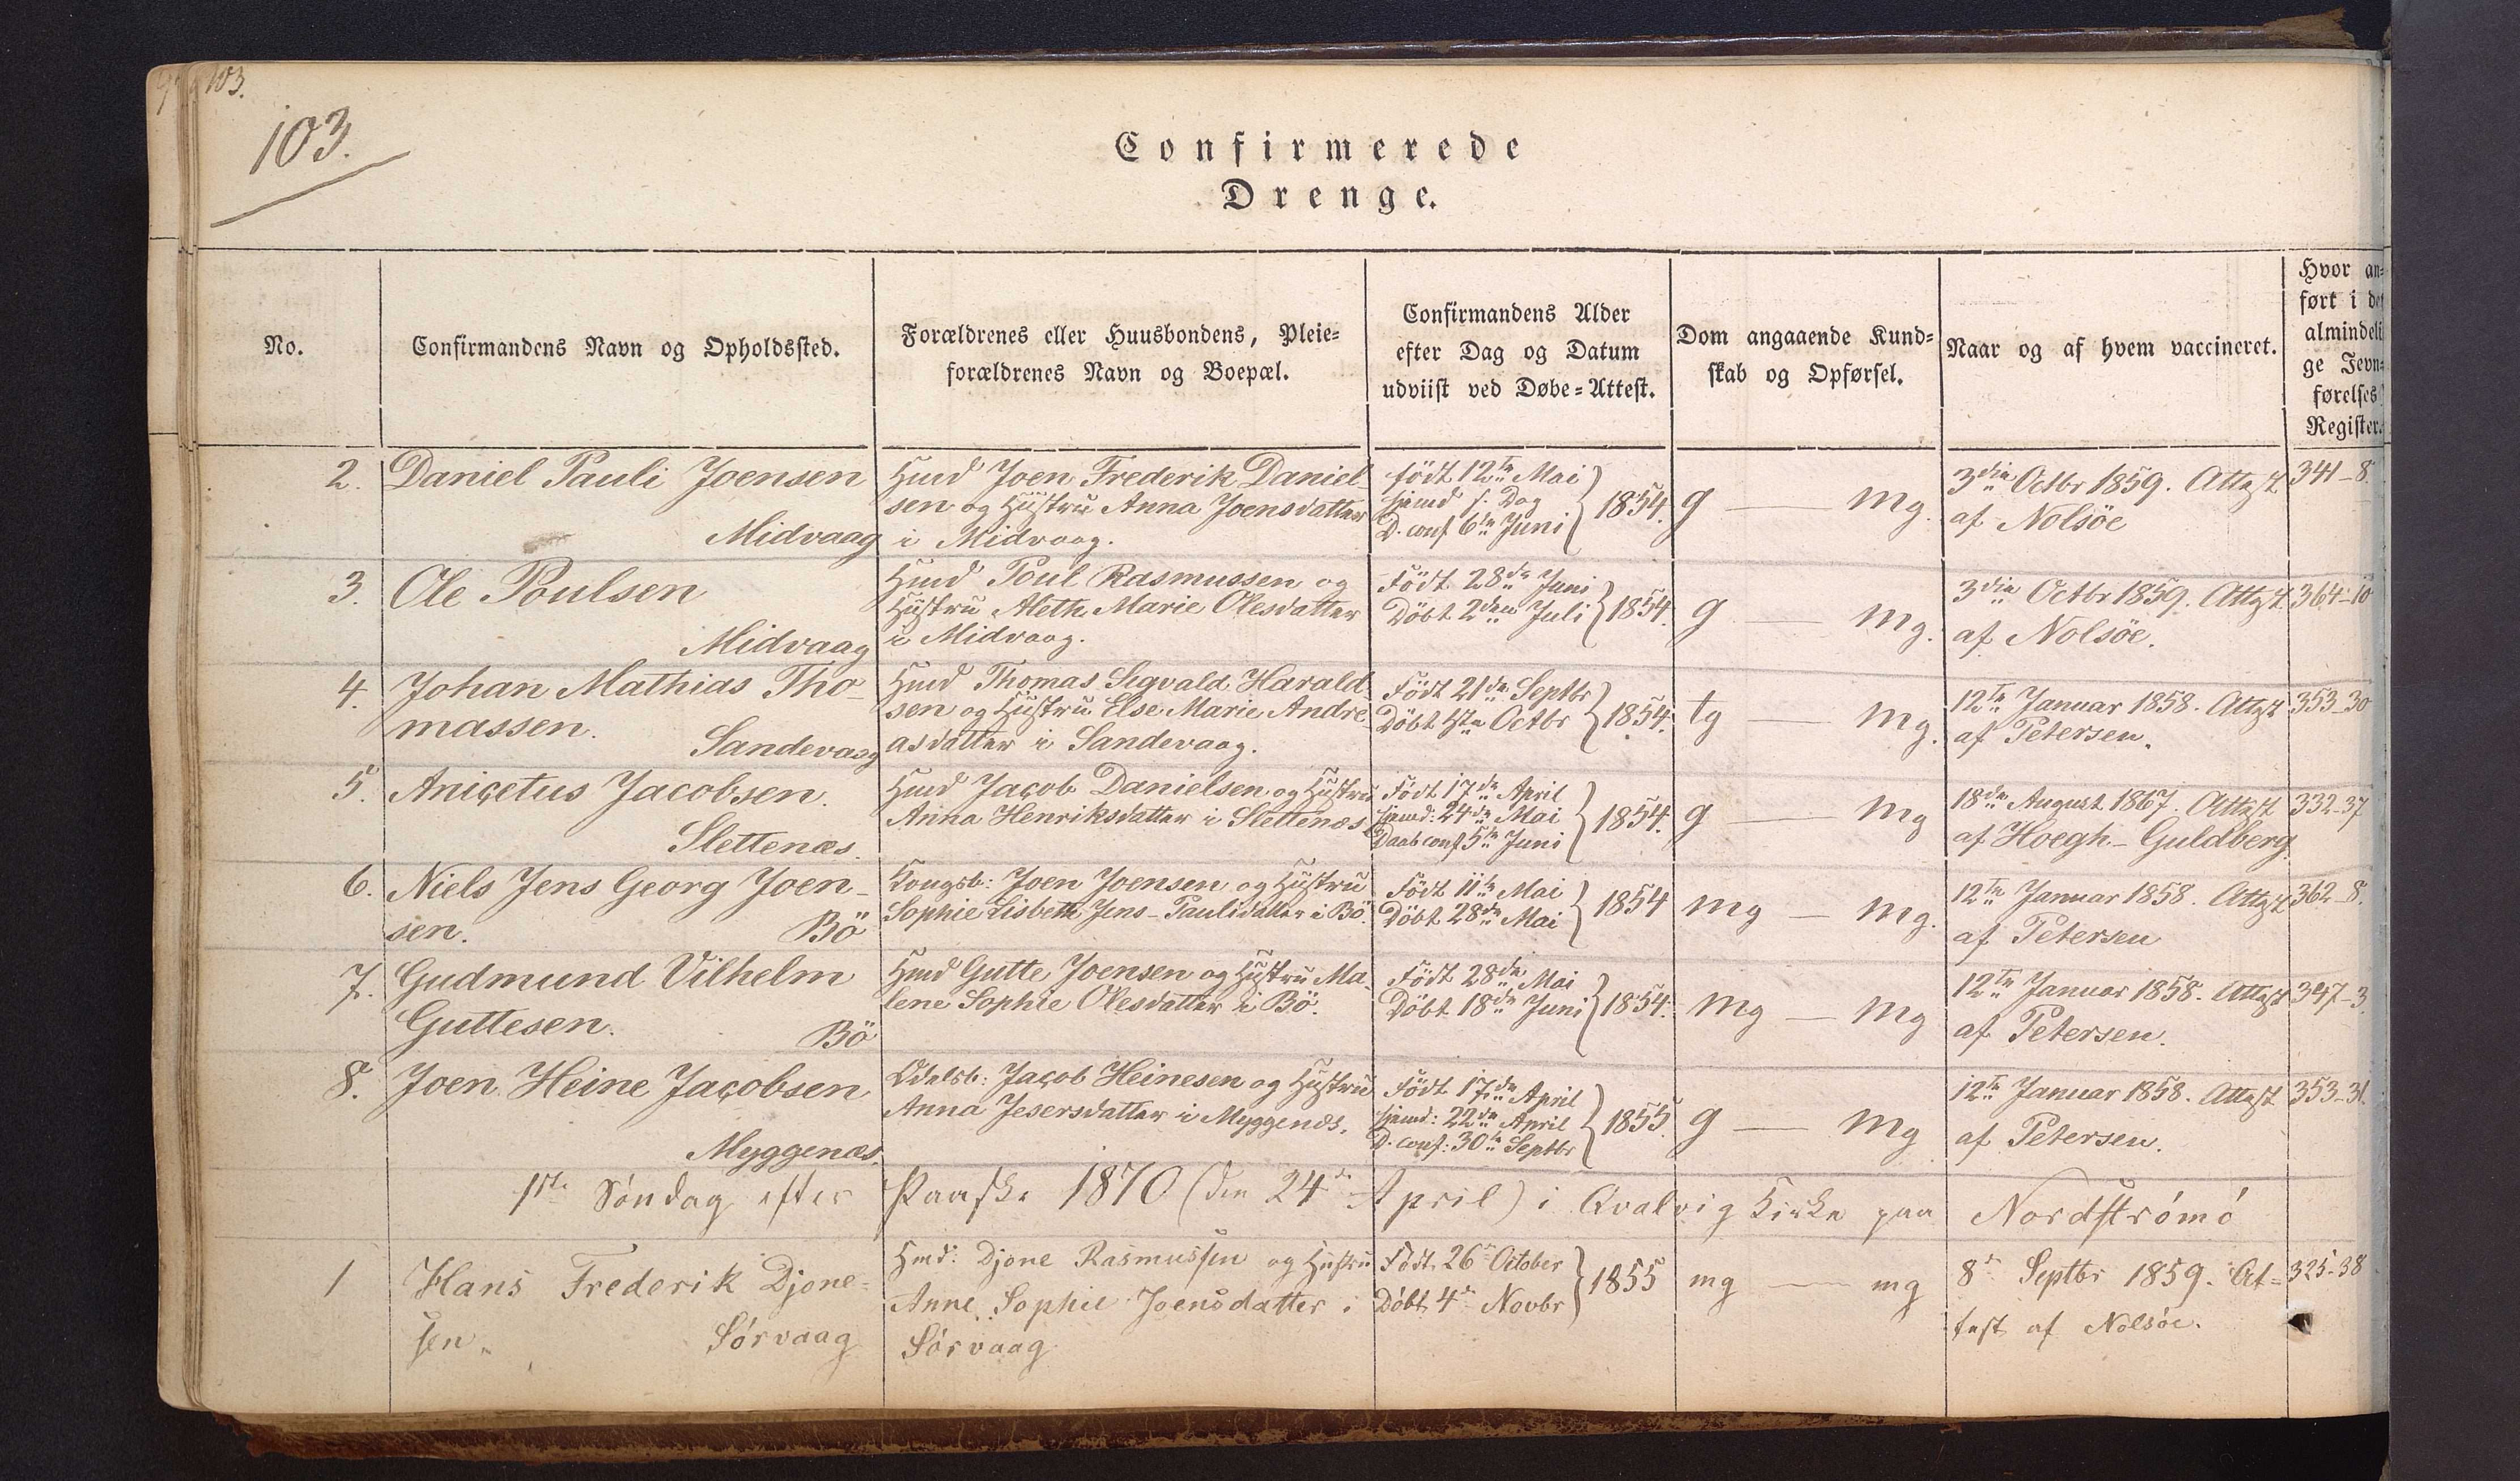 103.
103.
Confirmerede
Drenge.
No.
Confirmandens Navn og Opholdssted.
Forældrenes eller Huusbondens, Pleie-
forældrenes Navn og Boepæl.
Confirmandens Alder
efter Dag og Datum
udviist ved Døbe-Attest.
Dom angaaende Kund-
skab og Opførsel.
Naar og af hvem vaccineret.
Hvor an-
ført i det
almindeli
ge Jevn-
førelses
Register.
2.
Daniel Pauli Joensen
Midvaag
Hmd Joen Frederik Daniel-
sen og Hustru Anna Joensdatter
i Midvaag.
født 12te Mai
hjemd s. Dag
D. conf 6te Juni
1854.
g — mg.
3die Octbr 1859. Attest
af Nolsöe
341-8.
3.
Ole Poulsen
Midvaag
Hmd Poul Rasmussen og
Hustru Aleth. Marie Olesdatter
i Midvaag.
Födt 28de Juni
Döbt 2den Juli
1854.
g — mg.
3die Octbr 1859. Attest
af Nolsöe.
364-10
4.
Johan Mathias Tho-
massen.
Sandevaag
Hmd Thomas Sigvald Harald
sen og Hustru Else Marie Andre-
asdatter i Sandevaag.
Födt 21de Septbr
Döbt 4de Octbr
1854.
tg — mg.
12te Januar 1858. Attest
af Petersen.
353-30
5.
Anicetus Jacobsen.
Slettenæs.
Hmd Jacob Danielsen og Hustru
Anna Henriksdatter i Slettenæs
Födt 17de April
hjemd: 24de Mai
Daab conf 5te Juni
1854.
g — mg
18de August 1867. Attest
af Hoegh-Guldberg.
332-37
6.
Niels Jens Georg Joen-
sen.
Bö
Kongsb: Joen Joensen og Hustru
Sophie Lisbeth Jens-Paulidatter i Bö.
Födt 11te Mai
Döbt 28de Mai
1854
mg — mg.
12te Januar 1858. Attest
af Petersen
362-8.
7.
Gudmund Vilhelm
Guttesen.
Bö
Hmd Gutte Joensen og Hustru Ma-
lene Sophie Olesdatter i Bö.
Födt 28de Mai
Döbt 18de Juni
1854.
mg — mg
12te Januar 1858. Attest
af Petersen.
347-3.
8.
Joen Heine Jacobsen
Myggenæs.
Odelsb: Jacob Heinesen og Hustru
Anna Jesersdatter i Myggenæs.
Födt 17de April
hjemd: 22de April
D. conf: 30te Septbr
1855.
g — mg
12te Januar 1858. Attest
af Petersen.
353-31.
1ste Søndag efter Paaske 1870 (den 24de April) i Qvalvig Kirke paa Nordstrømø
1
Hans Frederik Djone-
sen.
Sørvaag
Hmd: Djone Rasmussen og Hustru
Anne Sophie Joensdatter i
Sørvaag
Født 26de October
Døbt 4de Novbr
1855
mg — mg
8de Septbr 1859. At-
test af Nolsøe.
325-38